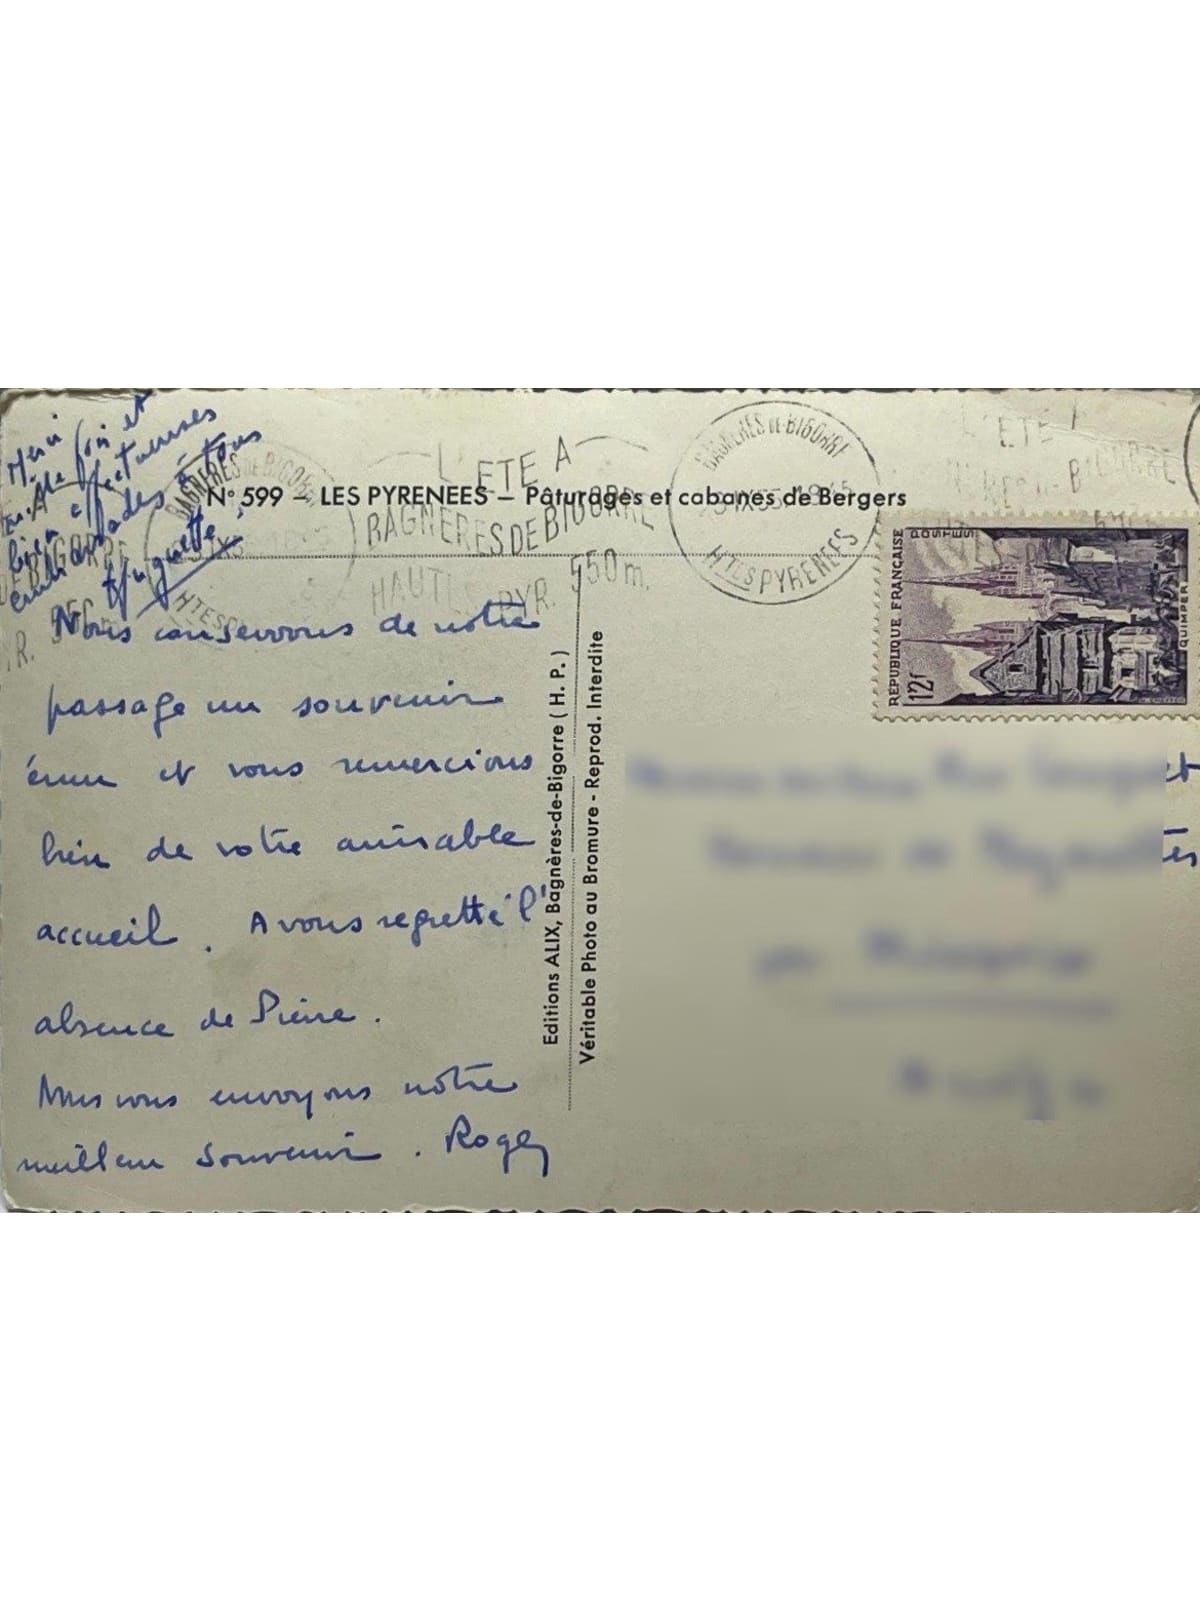 Merci
à la fois et
bien affectueuses
embrassades à tous
Huguette
L'ETE A
BAGNERES DE BIGORRE
HAUTES PYR. 550 m.
BAGNERES DE BIGORRE
HTES PYRENEES
N° 599 – LES PYRENEES – Pâturages et cabanes de Bergers
REPUBLIQUE FRANÇAISE
POSTES
12f
QUIMPER
Nous conservons de notre
passage un souvenir
ému et vous remercions
bien de votre aimable
accueil. Avons regretté l'
absence de Pierre.
Nous vous envoyons notre
meilleur souvenir. Roger
Editions ALIX, Bagnères-de-Bigorre (H. P.)
Véritable Photo au Bromure - Reprod. Interdite